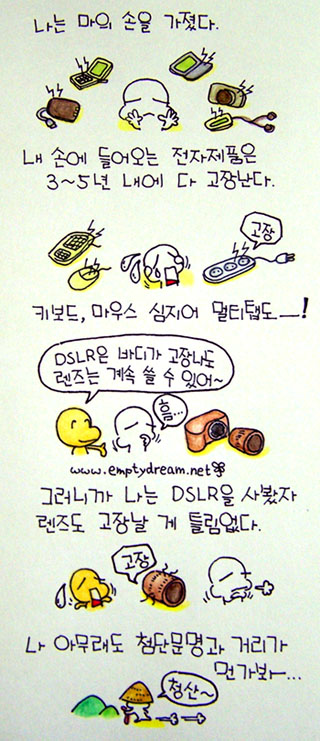 나는 마의 손을 가졌다.
내 손에 들어오는 전자제품은
3~5년 내에 다 고장난다.
고장
키보드, 마우스 심지어 멀티탭도__!
DSLR은 바디가 고장나도
렌즈는 계속 쓸 수 있어~
흠...
www.emptydream.net
그러니가 나는 DSLR을 사봤자
렌즈도 고장날 게 틀림없다.
고장
나 아무래도 첨단문명과 거리가
먼가봐—...
청산~